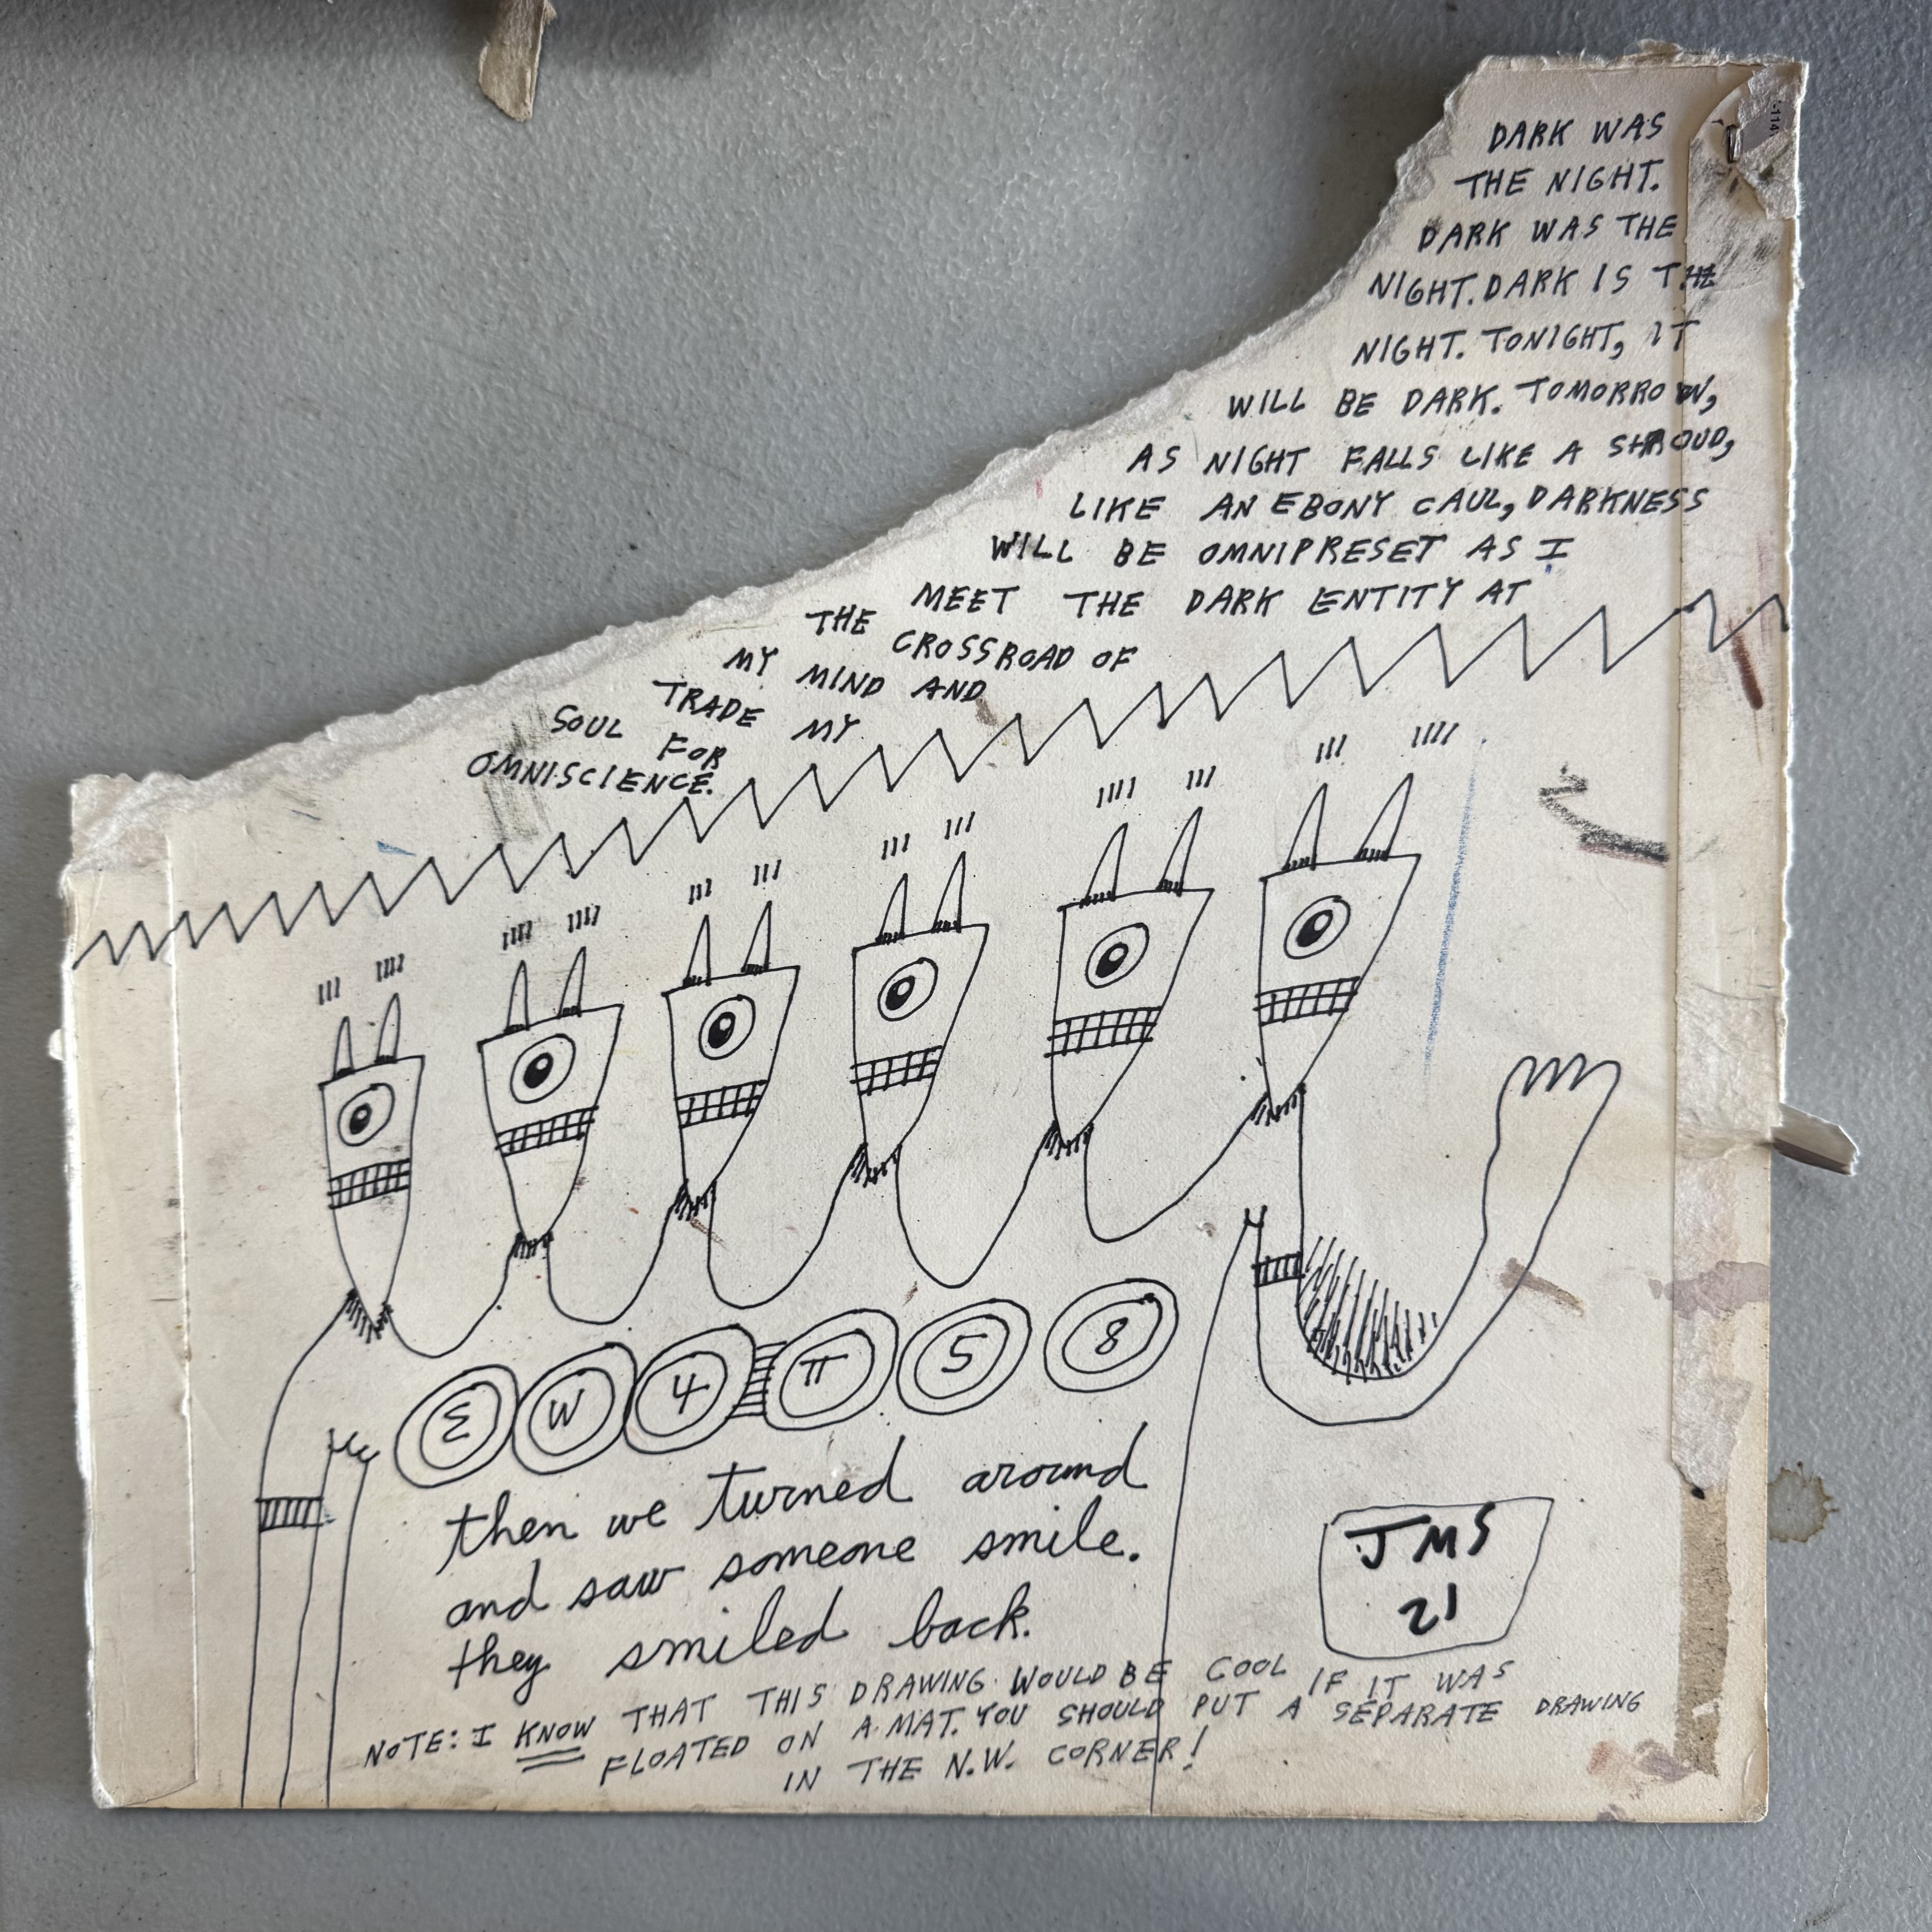 DARK WAS
THE NIGHT.
DARK WAS THE
NIGHT. DARK IS THE
NIGHT. TONIGHT, IT
WILL BE DARK. TOMORROW,
AS NIGHT FALLS LIKE A SHROUD,
LIKE AN EBONY CAUL, DARKNESS
WILL BE OMNIPRESET AS I
MEET THE DARK ENTITY AT
THE CROSSROAD OF
MY MIND AND
TRADE MY
SOUL FOR
OMNISCIENCE.
Σ W 4 π 5 8
then we turned around
and saw someone smile.
they smiled back.
JMS
21
NOTE: I KNOW THAT THIS DRAWING WOULD BE COOL IF IT WAS
FLOATED ON A MAT. YOU SHOULD PUT A SEPARATE DRAWING
IN THE N.W. CORNER!